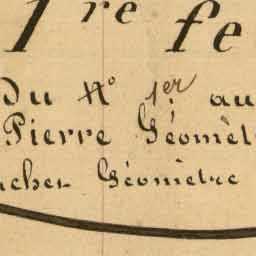 1re fe
Du No 1er au
Pierre Géomèt
ucher Géomètre